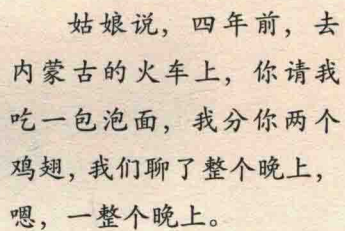 姑娘说，四年前，去
内蒙古的火车上，你请我
吃一包泡面，我分你两个
鸡翅，我们聊了整个晚上，
嗯，一整个晚上。